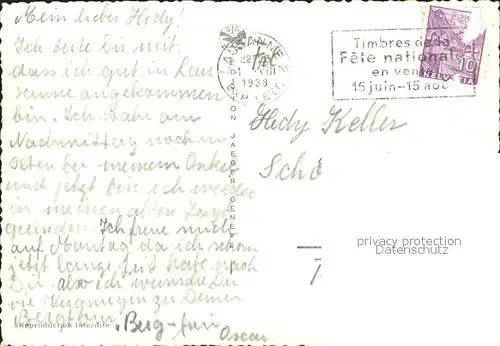 Mein liebes Hedy!
Ich teile Dir mit,
dass ich gut in Lau
sanne angekommen
bin. Ich nahm am
Nachmittag noch in
Olten bei meinem Onkel
und jetzt bin ich wieder
in meinem alten
Ich freue mich
auf Montag da ich schon
jetzt lange Zeit habe nach
Dir. also ich wünsche Dir
viel Vergnügen zu Deiner
Bergtour.
"Berg-frei"
Oscar
Reproduction interdite
EDITION JAEGER, GENÈVE
LAUSANNE
1938
Timbres de la
Fête nationale
en vente
15 juin-15 août
HELVETIA
10
Hedy Keller
Schö
7
privacy protection
Datenschutz